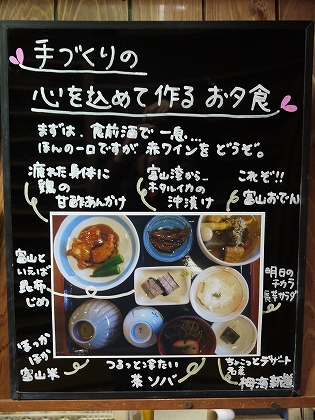 手づくりの
心を込めて作る お夕食
まずは、食前酒で一息...
ほんの一口ですが 赤ワインをどうぞ。
疲れた身体に
鶏の
甘酢あんかけ
富山湾から…
ホタルイカの
沖漬け
これぞ!!
富山おでん
富山と
いえば
昆布
じめ
明日の
チカラ
長芋サラダ
ほっか
ほか
富山米
つるっと冷たい
茶ソバ
ちょこっとデザート
名産
栂海新道